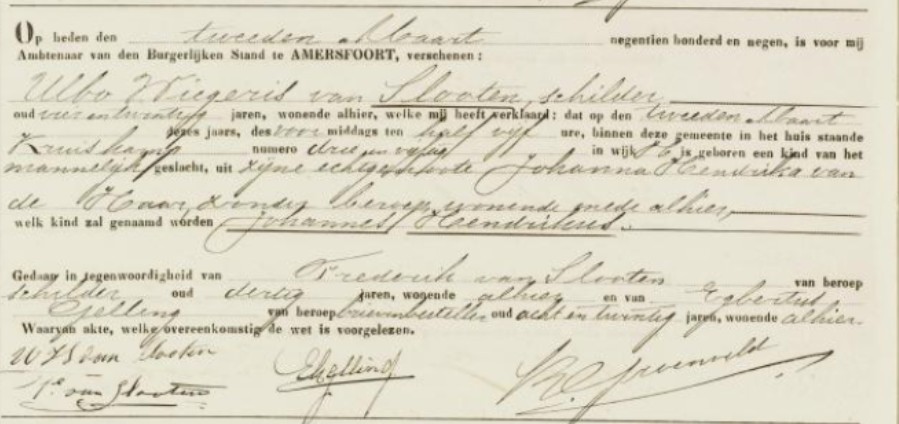 Op heden den tweeden Maart negentien honderd en negen, is voor mij
Ambtenaar van den Burgerlijken Stand te AMERSFOORT, verschenen:
Ulbo Wiegeris van Slooten, schilder,
oud vier en twintig jaren, wonende alhier, welke mij heeft verklaard: dat op den tweeden Maart
dezes jaars, des voor middags ten half vijf ure, binnen deze gemeente in het huis staande
Kruiskamp numero drie en vijftig in wijk is geboren een kind van het
mannelijk geslacht, uit zijne echtgenoote Johanna Hendrika van
de Haar, zonder beroep, wonende mede alhier,
welk kind zal genaamd worden Johannes Hendrikus.
Gedaan in tegenwoordigheid van Frederik van Slooten van beroep
schilder oud dertig jaren, wonende alhier en van Egbertus
Gelling van beroep brievenbesteller oud acht en twintig jaren, wonende alhier.
Waarvan akte, welke overeenkomstig de wet is voorgelezen.
van Slooten
EGelling
F. van Slooten